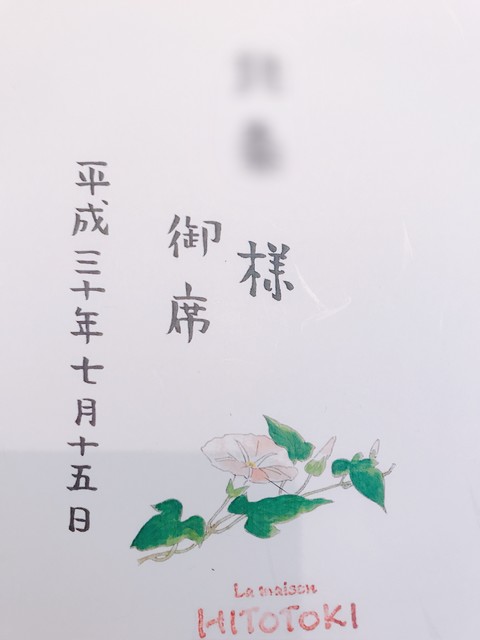 様
御席
平成三十年七月十五日
La maison
HITOTOKI